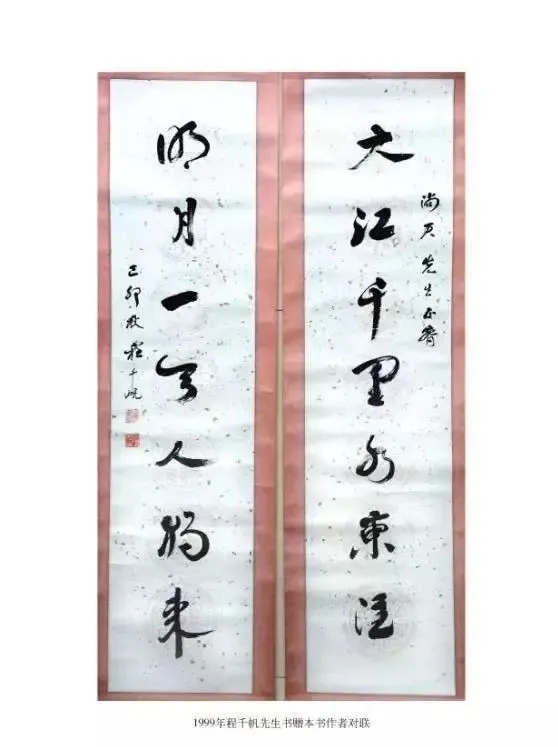 大江千里水東注
尚君先生正
明月一天人獨來
己卯秋程千帆
1999年程千帆先生书赠本书作者对联